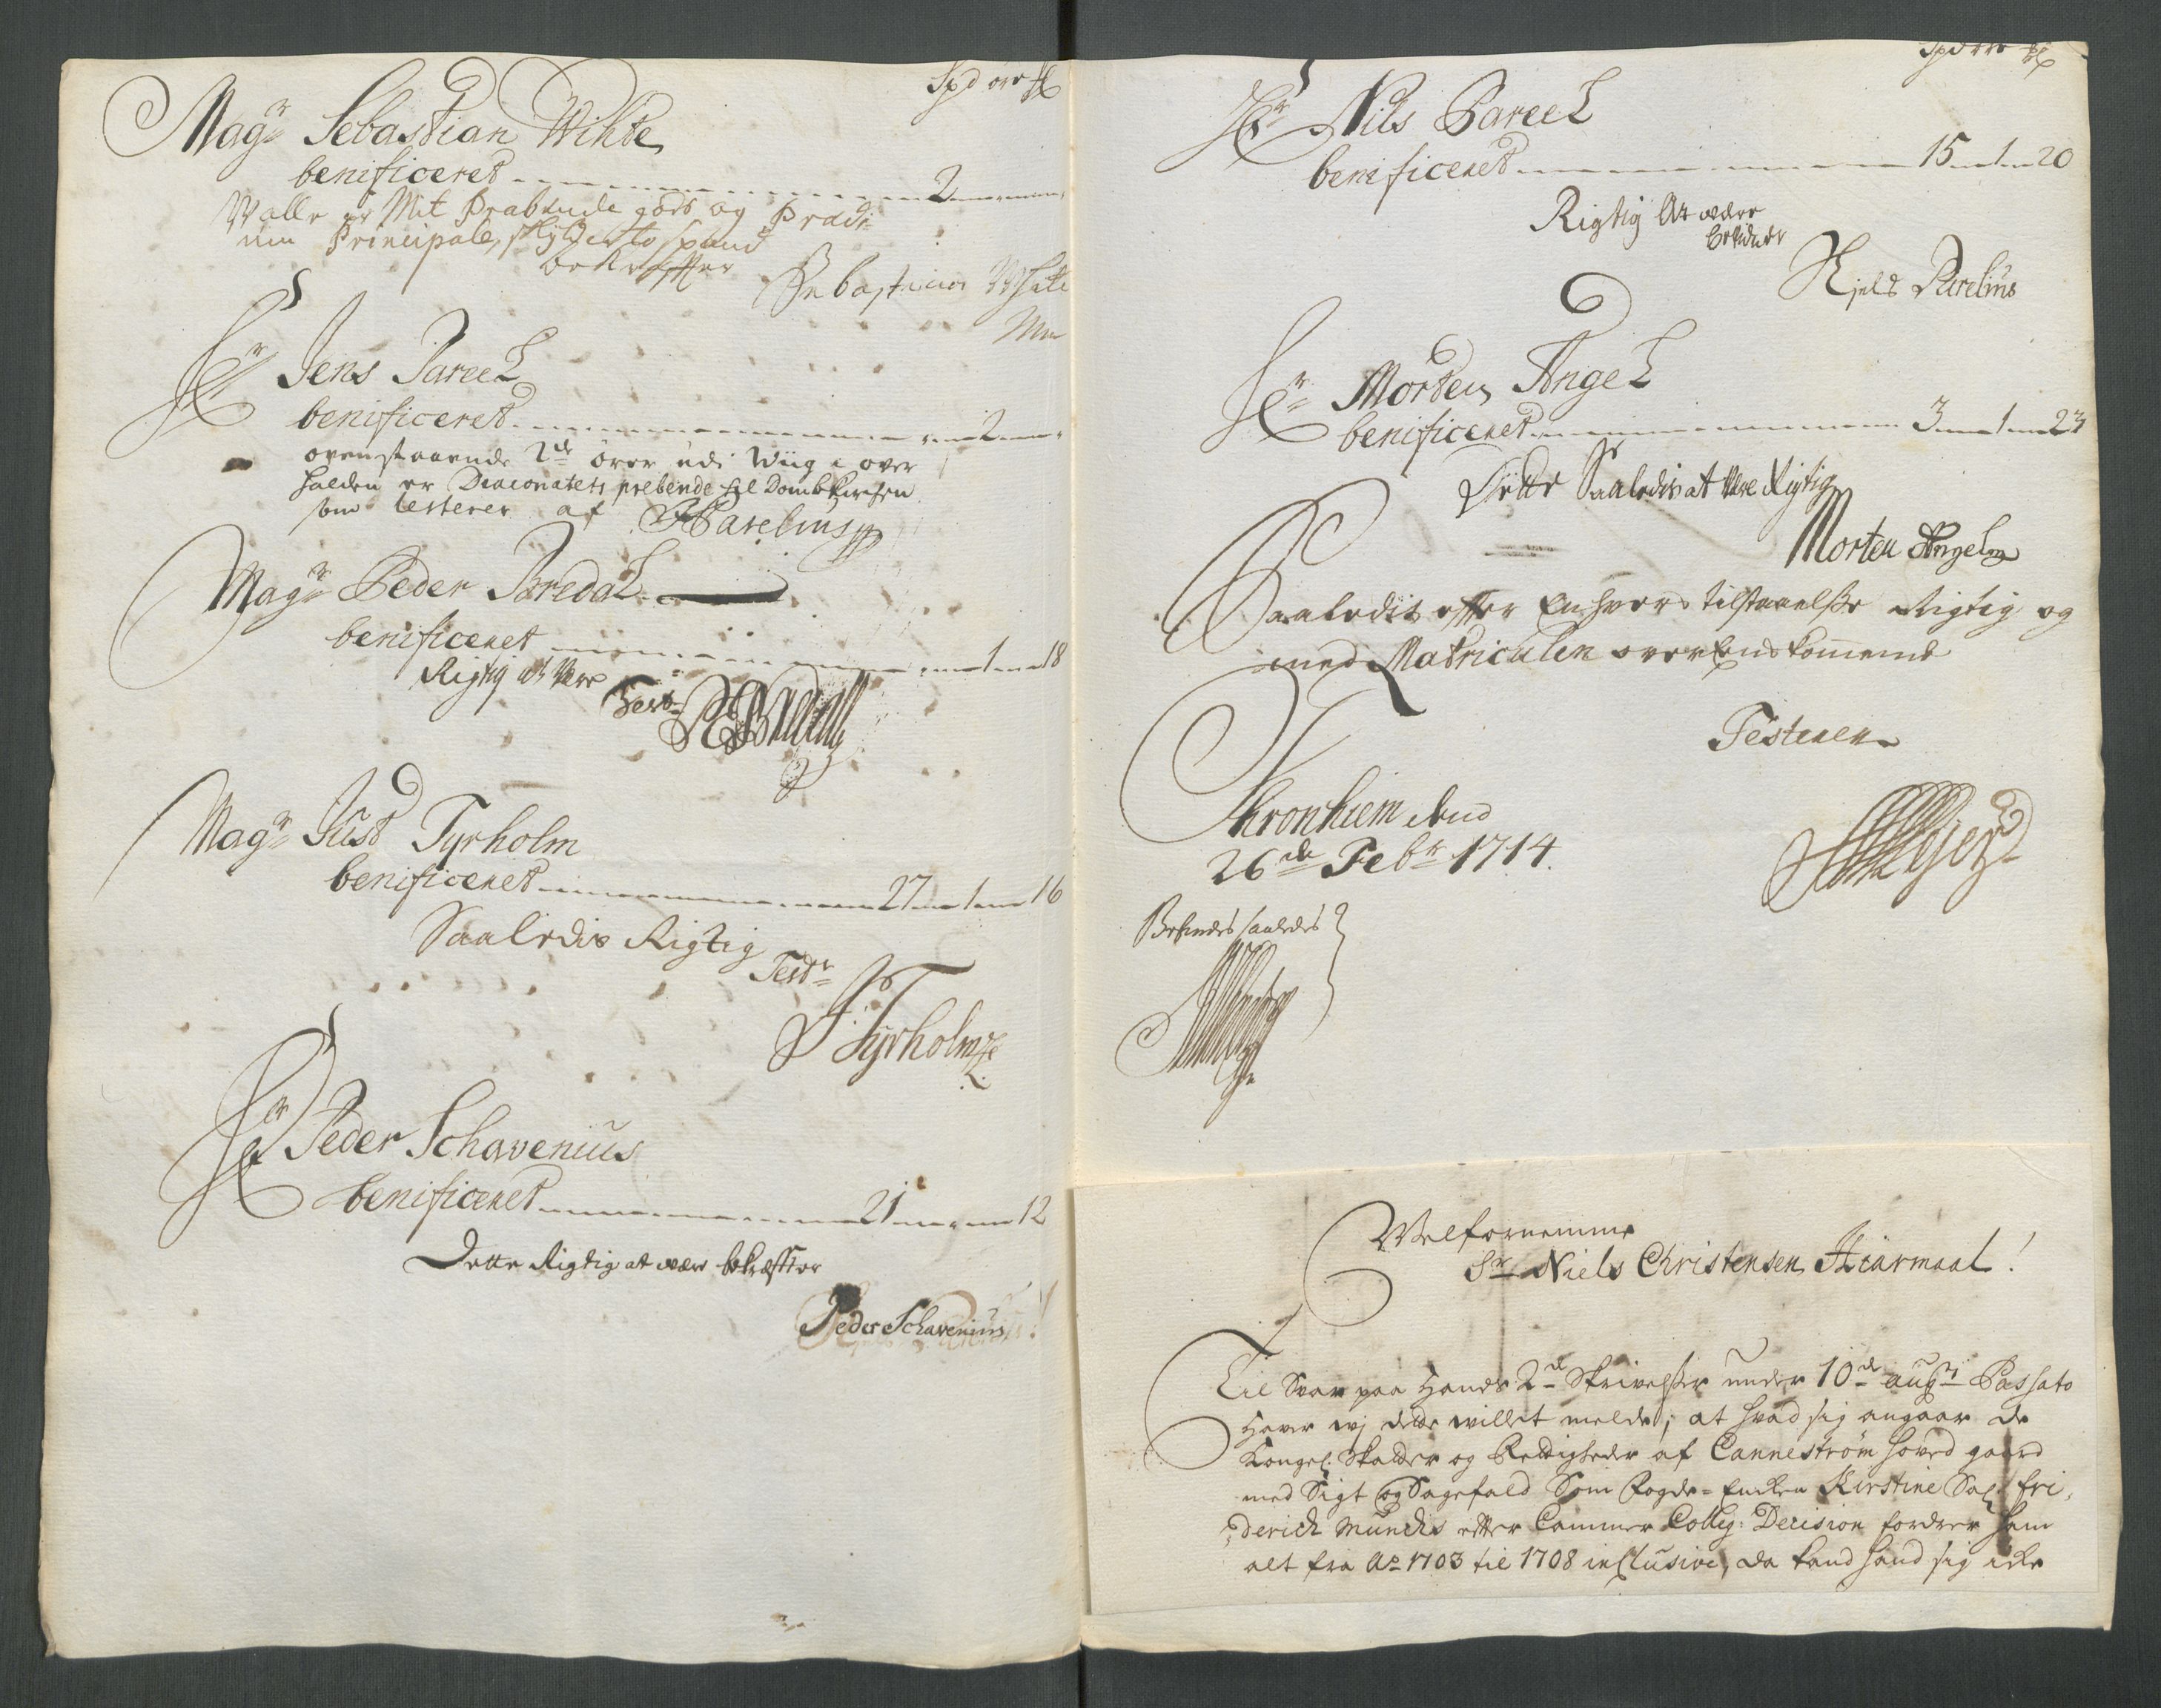 Spd ør ℔
Magr Sebastian Wihte
benificeret 2
Walle er Mit Præbende gods og Prædi
um Principale, skylder to spand
bekreffter Sebastian White
Hr Jens Pareel
benificeret 2
ovenstaaende 2de ører udi Wiig i over
halden er Diaconatets prebende til Dombkirken
som testerer af JParelius
Magr Peder Bredal
benificeret 1 18
Rigtig at være
Test
Magr Just Tyrholm
benificeret 27 1 16
Saaledis Rigtig
Testr
J: Tyrholm
Hr Peder Schavenius
benificeret 21 12
Dette Rigtig at være bekræffter
Peder Schavenius
Spd ør ℔
Hr Nils Pareel
benificeret 15 1 20
Rigtig At være
bekiender
Niels Parelius
Hr Morten Angel
benificeret 3 1 23
Dette Saaledis at være Rigtig
Morten Angel
Saaledis effter Enhvers tilstaaelsse Rigtig og
med Matriculen overEnskomende
Testerer
Thronhiem dend
26de Febr 1714.
Befindes saaledes
Welfornemme
Sr Niels Christensen Hiarmaal!
Til Svar paa Hands 2de Skrivelsser under 10de augti Passato
Haver wj dette willet melde, at hvad sig angaar de
Kongel: Skatter og Rettigheder af Cannestrøm hoved gaard
med Sigt og Sagefald Som Fogde-Enken Kirstine Sal. Fri,
derich Mundis effter Cammer Colleg: Decision fordrer ham
alt fra Ao 1703 til 1708 inclusive, da kand hand sig icke